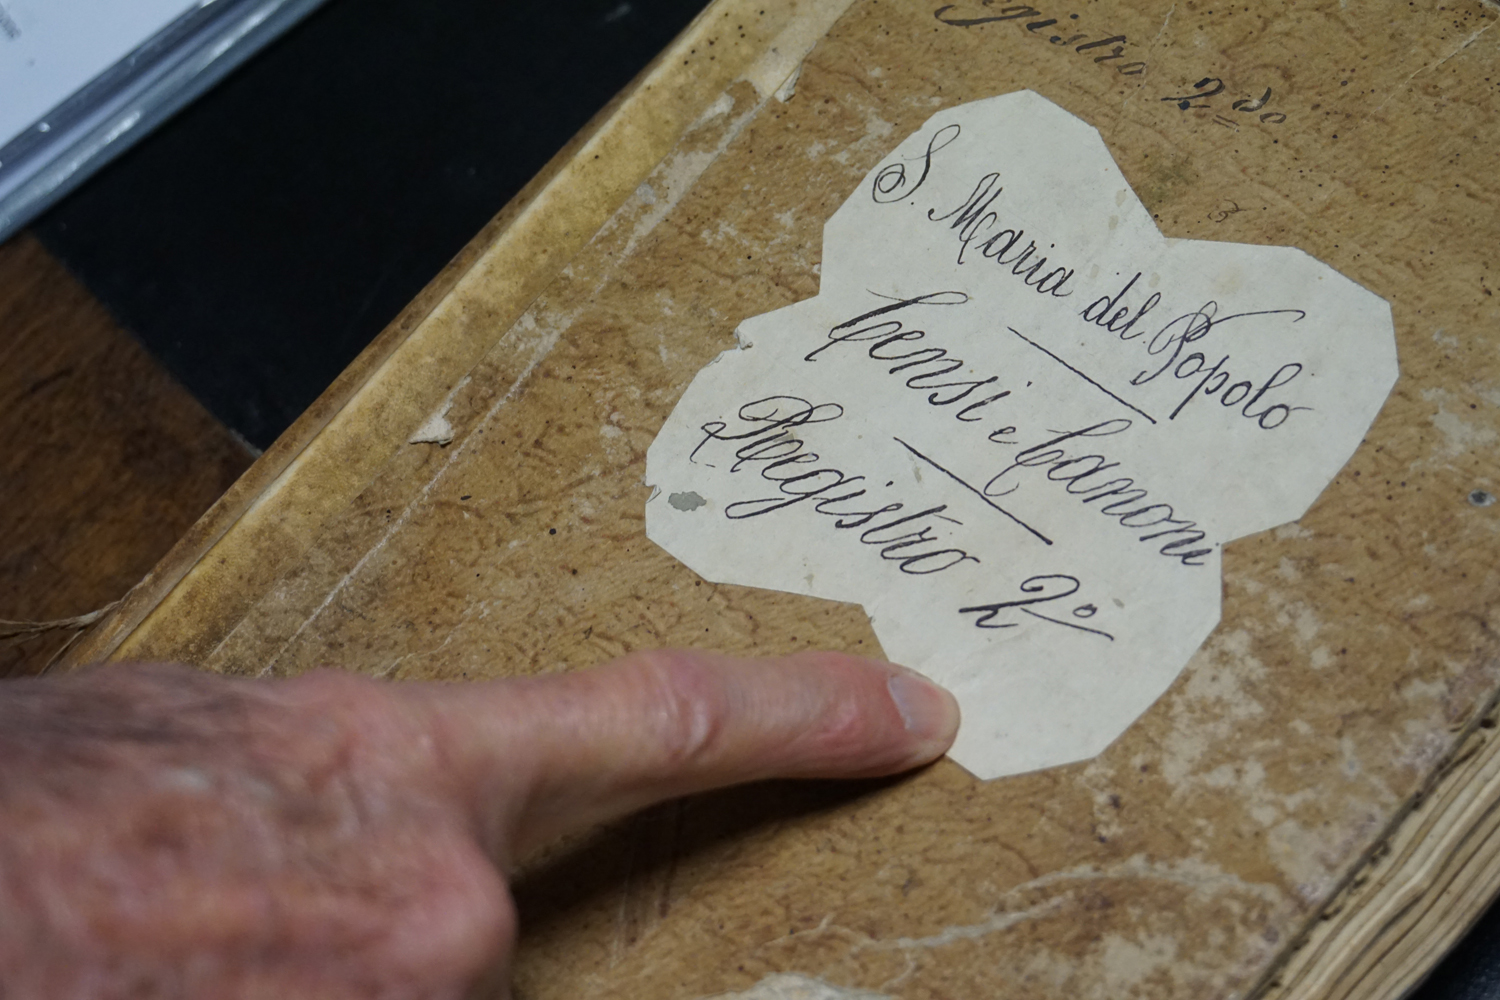 Registro 2do
S. Maria del Popolo
Censi e Canoni
Registro 2º